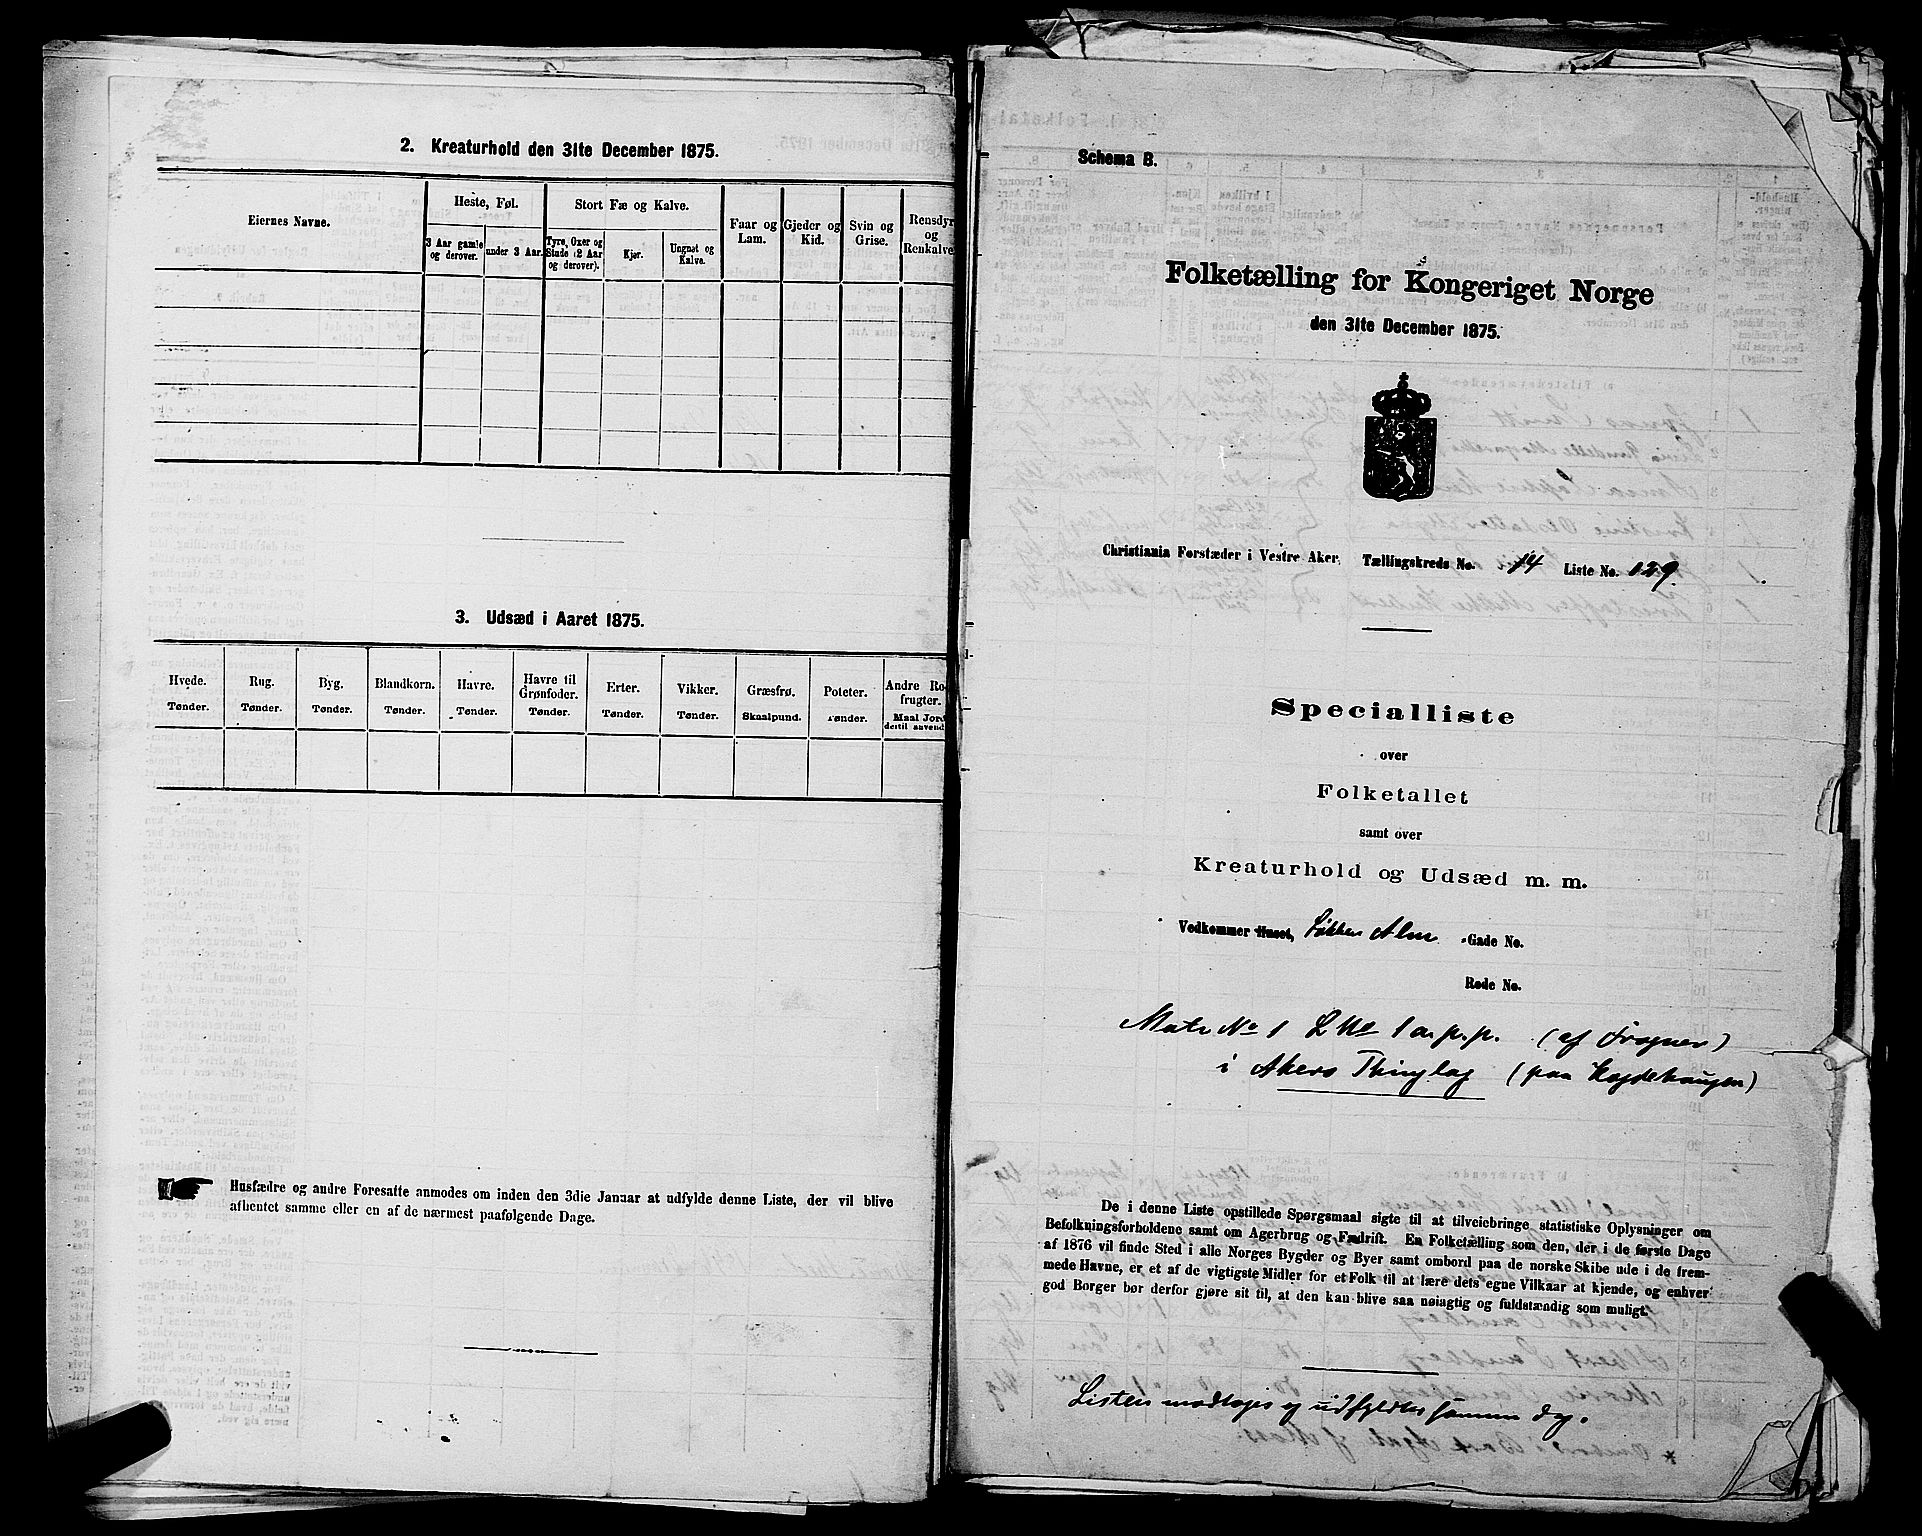 2. Kreaturhold den 31te December 1875.
Eiernes Navne.
Heste, Føl.
Stort Fæ og Kalve.
Faar og Lam.
Gjeder og Kid.
Svin og Grise.
Rensdyr og Renkalve
3 Aar gamle og derover.
under 3 Aar.
Tyre, Oxer og Stude (2 Aar og derover).
Kjør.
Ungnøt og Kalve.
3. Udsæd i Aaret 1875.
Hvede. Rug. Byg. Blandkorn. Havre. Havre til Grønfoder. Erter. Vikker. Græsfrø. Poteter. Andre Ro- frugter.
Tønder. Tønder. Tønder. Tønder. Tønder. Tønder. Tønder. Tønder. Skaalpund. Tønder. Maal Jord dertil anvend
Husfædre og andre Foresatte anmodes om inden den 3die Januar at udfylde denne Liste, der vil blive
afhentet samme eller en af de nærmest paafølgende Dage.
Schema B.
Folketælling for Kongeriget Norge
den 31te December 1875.
Christiania Forstæder i Vestre Aker. Tællingskreds No. 14 Liste No. 129
Specialliste
over
Folketallet
samt over
Kreaturhold og Udsæd m. m.
Vedkommer Huset, Løkken Alm Gade No.
Rode No.
Matr No 1 L No 1 a.p.p. (af Frogner)
i Akers Thinglag (paa Højdehaugen)
De i denne Liste opstillede Spørgsmaal sigte til at tilveiebringe statistiske Oplysninger om
Befolkningsforholdene samt om Agerbrug og Fædrift. En Folketælling som den, der i de første Dage
af 1876 vil finde Sted i alle Norges Bygder og Byer samt ombord paa de norske Skibe ude i de frem-
mede Havne, er et af de vigtigste Midler for et Folk til at lære dets egne Vilkaar at kjende, og enhver
god Borger bør derfor gjøre sit til, at den kan blive saa nøiagtig og fuldstændig som muligt.
Listen modtoges og udfyldtes samme Dag.